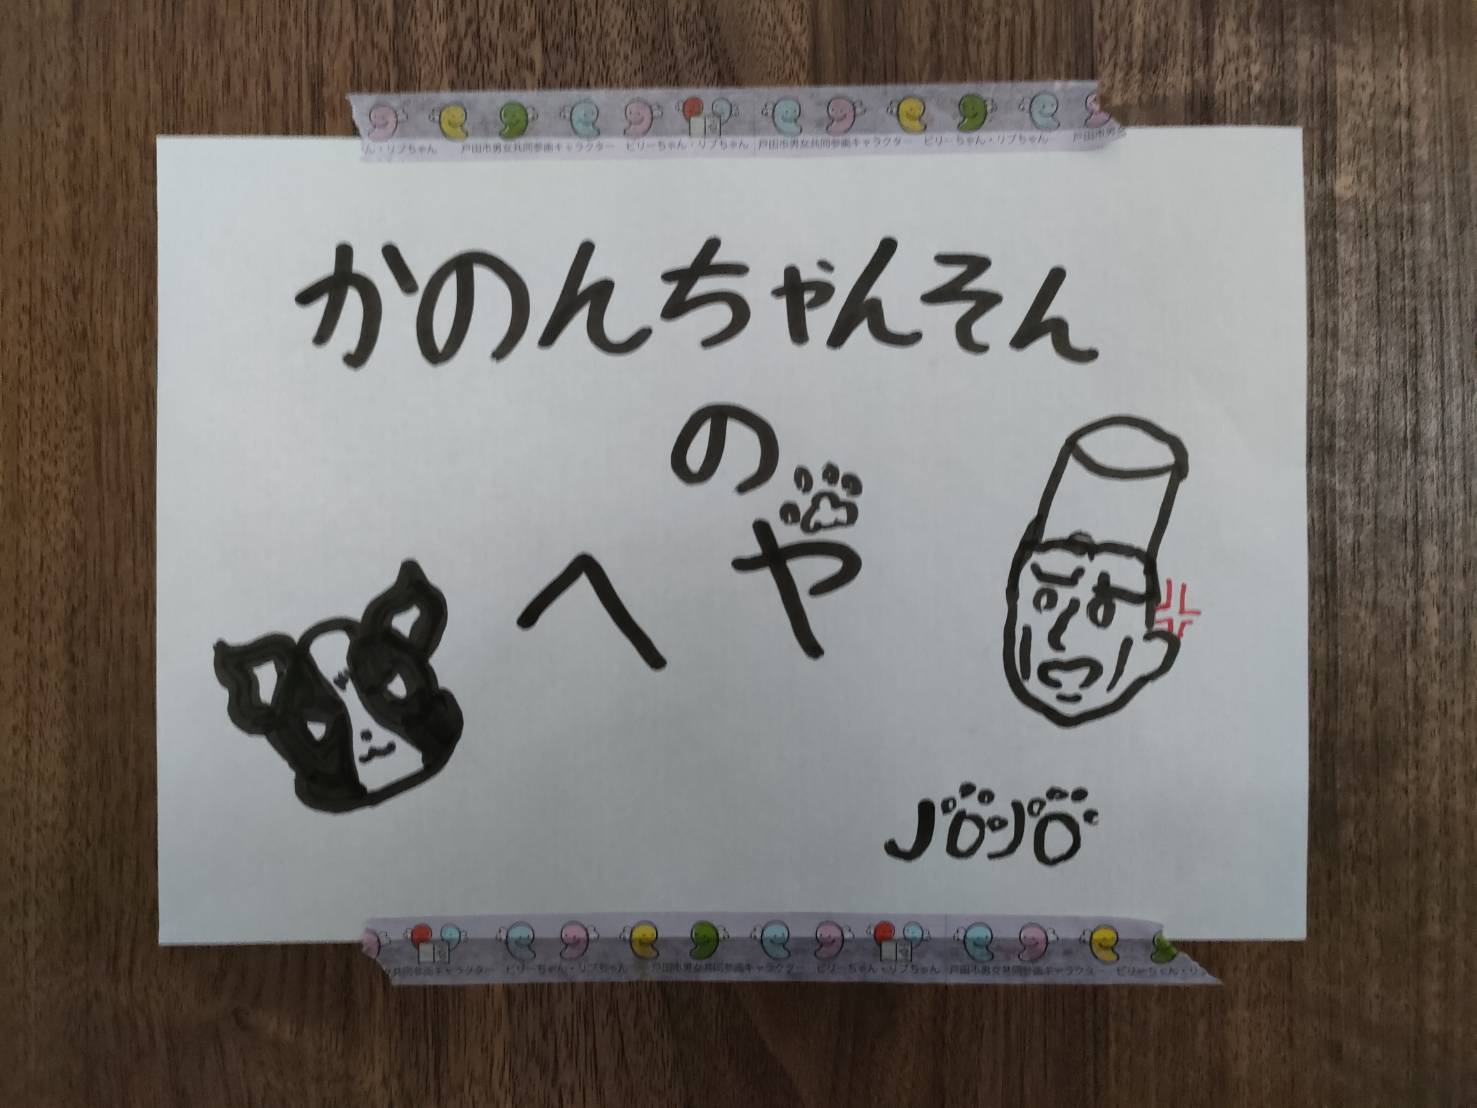 ん・リブちゃん 戸田市男女共同参画キャラクター ビリーちゃん・リブちゃん 戸田市男女共同参画キャラクター ビリーちゃん・リブちゃん 戸田市男女
かのんちゃんそん
の
へや
JOJO
女共同参画キャラクター ビリーちゃん・リブちゃん 戸田市男女共同参画キャラクター ビリーちゃん・リブちゃん 戸田市男女共同参画キャラクター ビリーちゃん・リブ